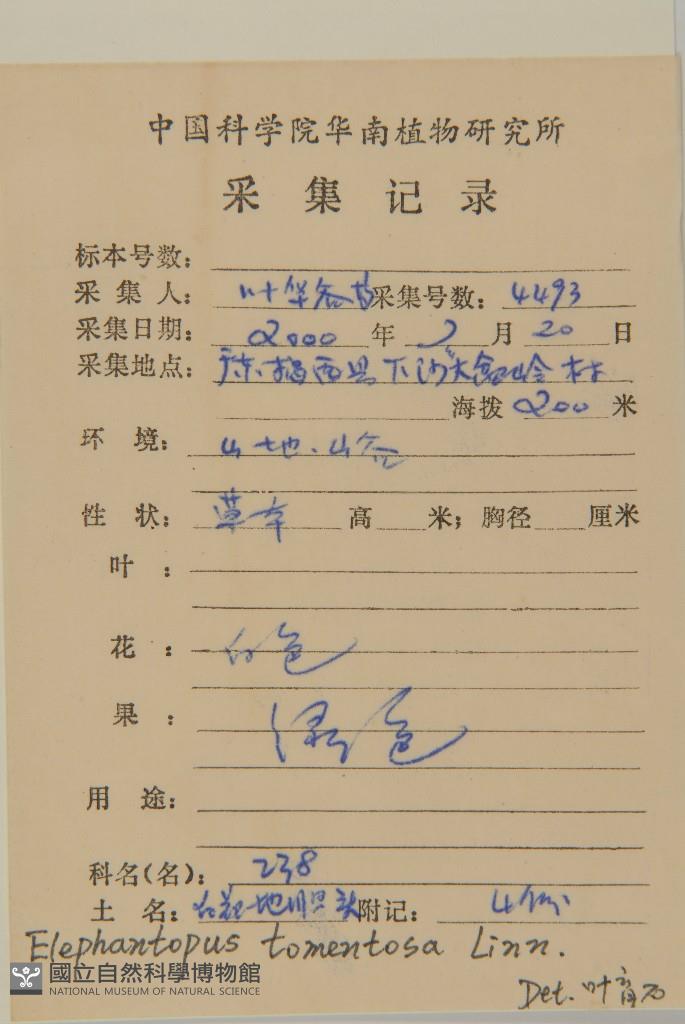 中国科学院华南植物研究所
采集记录
标本号数：
采集人： 叶华谷 采集号数： 4493
采集日期： 2000 年 月 20 日
采集地点： 广东.揭西县下沙大 村
海拨 200 米
环境： 山地.山谷
性状： 草本 高 米；胸径 厘米
叶：
花： 白色
果： 绿色
用途：
科名(名)： 238
土名： 白花地胆头 附记： 4份
Elephantopus tomentosa Linn.
國立自然科學博物館
NATIONAL MUSEUM OF NATURAL SCIENCE
Det. 叶育石